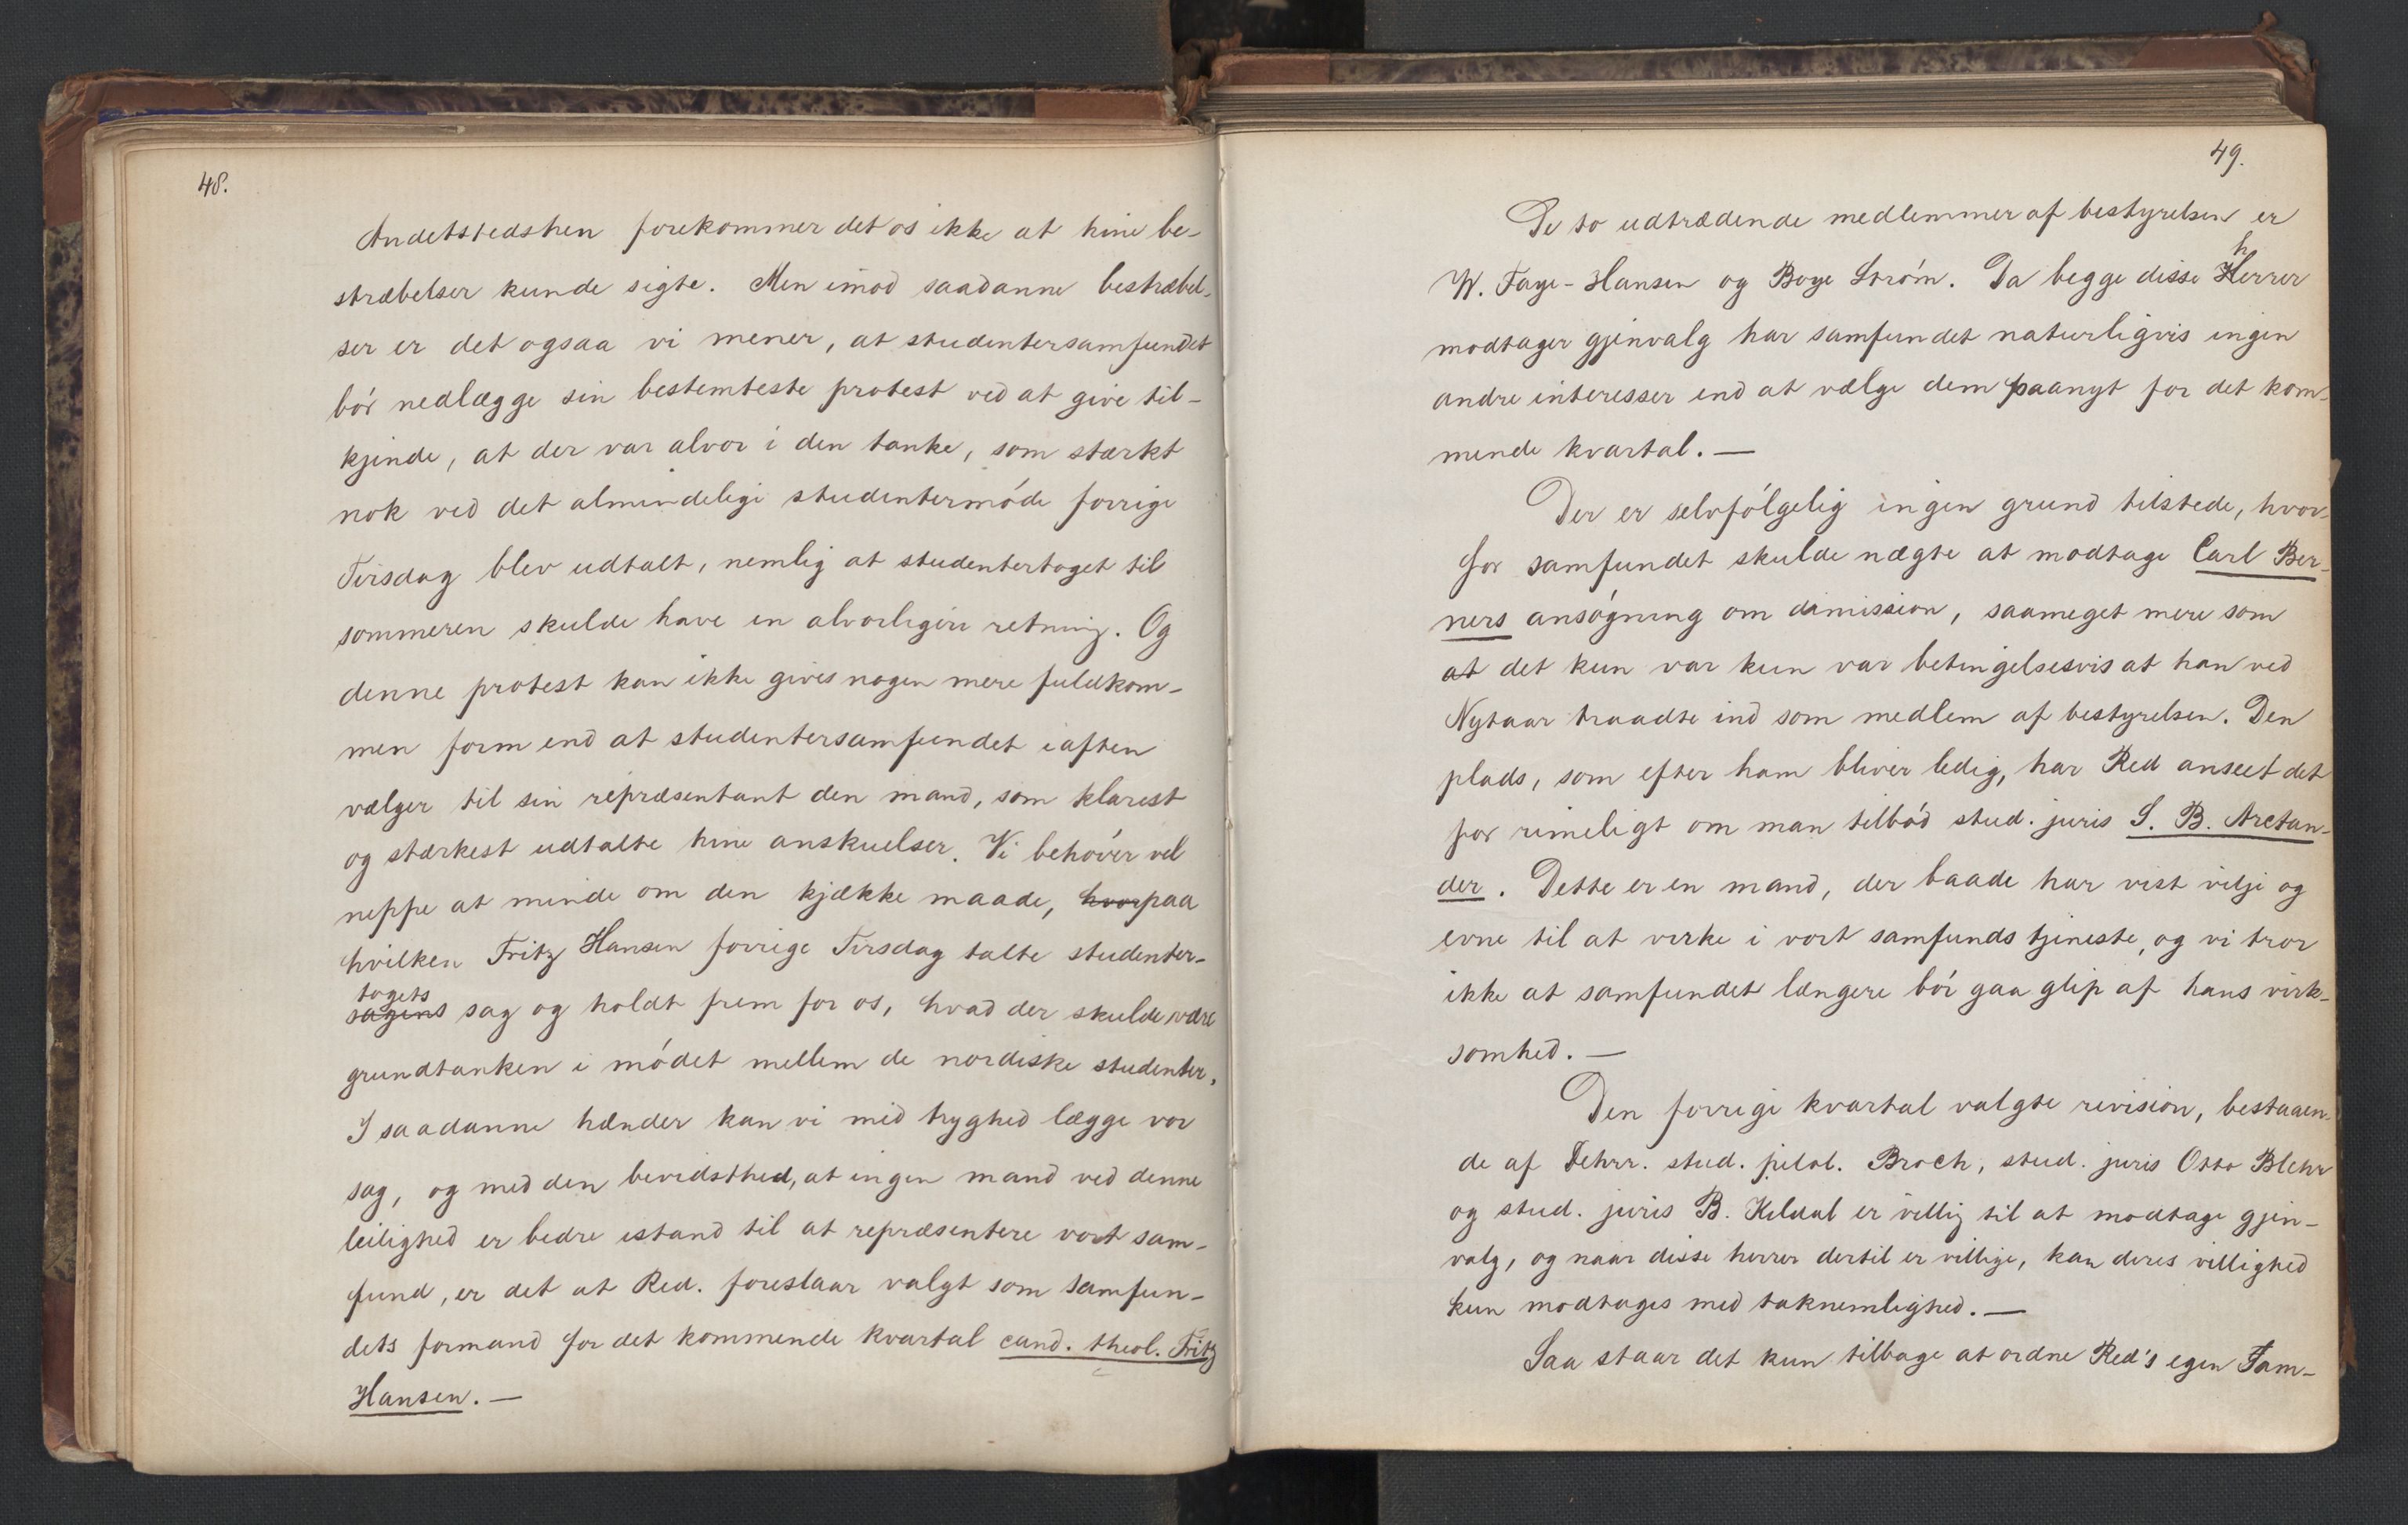 48.
Andetstedshen forekommer det os ikke at hine be-
stræbelser kunde sigte. Men imod saadanne bestræbel-
ser er det ogsaa vi mener, at studentersamfundet
bór nedlægge sin bestemteste protest ved at give til-
kjende, at der var alvor i den tanke, som stærkt
nok ved det almindelige studentermóde forrige
Tirsdag blev udtalt, nemlig at studentertoget til
sommeren skulde have en alvorligere retning. Og
denne protest kan ikke gives nogen mere fuldkom-
men form end at studentersamfundet iaften
vælger til sin repræsentant den mand, som klarest
og stærkest udtalte hine anskuelser. Vi behóver vel
neppe at minde om den kjække maade, hvorpaa
hvilken Fritz Hansen forrige Tirsdag talte studenter-
togets
sagens sag og holdt frem for os, hvad der skulde være
grundtanken i módet mellem de nordiske studenter.
I saadanne hænder kan vi med tryghed lægge vor
sag, og med den bevidsthed, at ingen mand ved denne
leilighed er bedre istand til at repræsentere vort sam-
fund, er det at Red. foreslaar valgt som samfun-
dets formand for det kommende kvartal cand. theol. Fritz
Hansen. —
49.
De to udtrædende medlemmer af bestyrelsen er
h
W. Faye-Hansen og Boye Stróm. Da begge disse Herrer
modtager gjenvalg har samfundet naturligvis ingen
andre interesser end at vælge dem paanyt for det kom-
mende kvartal. —
Der er selvfólgelig ingen grund tilstede, hvor-
for samfundet skulde nægte at modtage Carl Ber-
ners ansógning om dimission, saameget mere som
at det kun var kun var betingelsesvis at han ved
Nytaar traadte ind som medlem af bestyrelsen. Den
plads, som efter ham bliver ledig, har Red anseet det
for rimeligt om man tilbód stud. juris S. B. Arctan-
der. Dette er en mand, der baade har vist vilje og
evne til at virke i vort samfunds tjeneste, og vi tror
ikke at samfundet længere bór gaa glip af hans virk-
somhed. —
Den forrige kvartal valgte revision, bestaaen-
de af Dehrr. stud. filol. Broch, stud. juris Otto Blehr
og stud. juris B. Kildal er villig til at modtage gjen-
valg, og naar disse herrer dertil er villige, kan deres villighed
kun modtages med taknemlighed. —
Saa staar det kun tilbage at ordne Red's egen Fam-